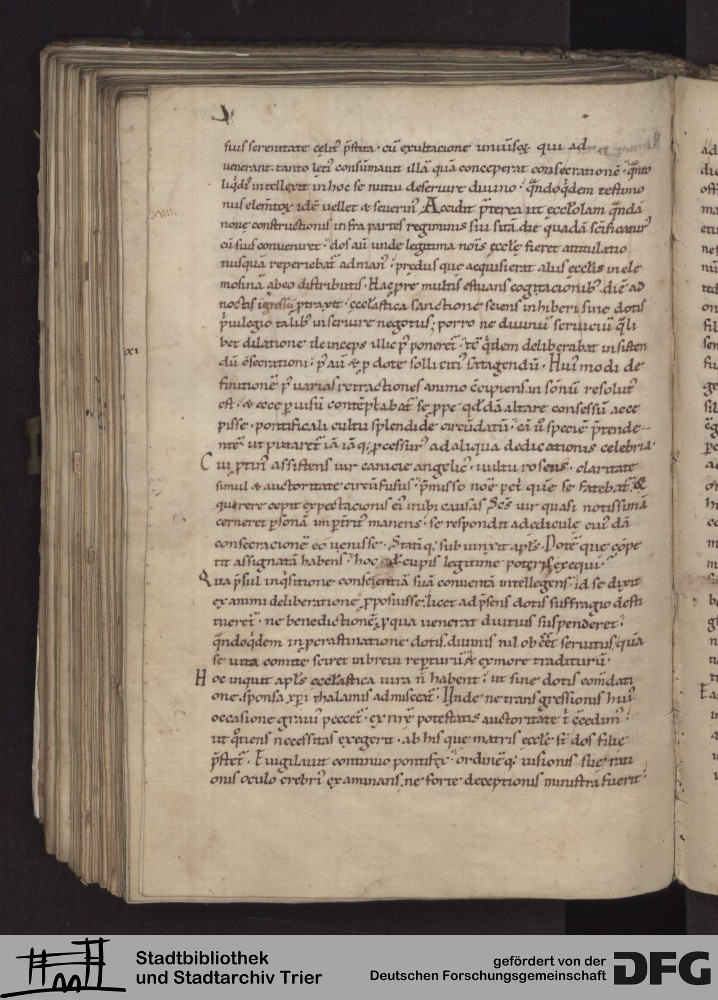 suis serenitate celit᷑ p̄stita · cū exultacione univ̄soꝝ qui ad
venerant · tanto letī consūmavit illā quā conceperat consecrationē · q̄nto
liq̄dī intellexit in hoc se nutui deservire divino · q̄ndoq̄dem testimo
niis elem̄toꝝ idē vellet & severin᷑ Accidit p̄terea ut eccl̄olam q̄ndā
nove constructionis infra partes regiminis sui sitā die quadā sc̄ificatur᷑
cū suis conveniret · dos aū unde legitima nōīs eccl̄e fieret attitulatio
nusquā reperiebat᷑ ad manū · p̄diis que acquisierat aliis eccl̄is in ele
mosinā ab eo distributis · Hac p̄re multis estuans cogitacionib᷑ diē ad
noctis igressū ptraxit · eccl̄astica sanctione sciens inhiberi sine dotis
p̄vilegio talib᷑ inservire negotiis; porro ne divinū serviciū q̄li
bet dilatione deinceps illic p̄ poneret᷑ · tē q̄dem deliberabat insisten
dū c̄secrationi · p᷑ aū & ꝓ dote sollicit᷑ satagendū · Hui᷑modi de
finitionē p᷑ varias retractiones animo c̄cipiens in sōnū resolut᷑
est · & ecce ꝑ visū contēplabat᷑ se ppe q̄ddā altare consessū acce
pisse · pontificali cultu splendide circūdatū · ei n̄ speciē p̄tende
nte᷑ ut putaret᷑ iā iāq; ꝓcessur᷑ ad aliqua dedicationis celebria
Cui ptin᷑ assistens vir canicie angelic᷑ · vultu roseus · claritate
simul & auctoritate circūfusus · p̄misso noē pet᷑ quē se fatebat᷑ &
querere cepit expectacionis ei᷑ inibi causas Sc̄s vir quasi notissimā
cerneret ꝑsonā imp̄trit᷑ manens · se respondit ad edicule cui᷑dā
consecracionē eo venisse · Statīq; subiunxit apls · Dotē que cōpe
tit assignatā habens · hoc qd cupis legitime poteris exequi
Qua p̄sul inq̄sitione conscientiā suā conventā intellegens · id se dixit
ex animi deliberatione pposuisse · licet ad p̄sens dotis suffragio desti
tueret᷑ · ne benedictionē ꝓ qua venerat diutius suspenderet ·
q̄ndoq̄dem in pcrastinatione dotis divinis nil obēēt servitiis quā
se vita comite sciret in brevi reperturū & ex more traditurū
Hoc inquit apls eccl̄astica iura n̄ habent · ut sine dotis cōm̄dati
one sponsa xp̄i thalamis admisceat᷑ · Unde ne transgressionis hui᷑
occasione gravi᷑ peccet᷑ · ex nr̄e potestatis auctoritate t᷑ c̄cedim᷑ ·
ut q̄tiens necessitas exegerit · ab his que matris eccl̄e st̄ dos filie
p̄stet᷑ · Evigilavit continuo pontifex · ordinēq; visionis sue rati
onis oculo crebri᷑ examinans · ne forte deceptionis ministra fuerit ·
xi
Stadtbibliothek
und Stadtarchiv Trier
gefördert von der
Deutschen Forschungsgemeinschaft
DFG